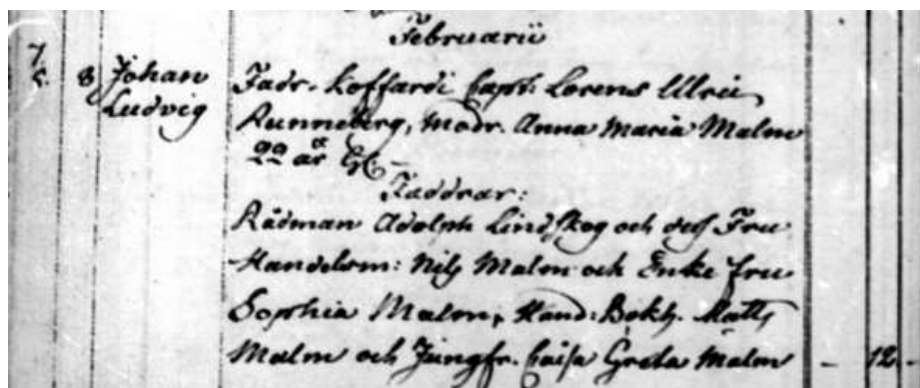 Februarii
7/5. 8 Johan Fadr. Koffardi Capt: Lorens Ulric
Ludvig Runneberg, Modr. Anna Maria Malm
22 år
Faddrar:
Rådman Adolph Lindskog och dess Fru
Handelsm: Nils Malm och Enke fru
Sophia Malm, Hand: Bokh. Matts
Malm och Jungfr. Caisa Greta Malm - 12 -